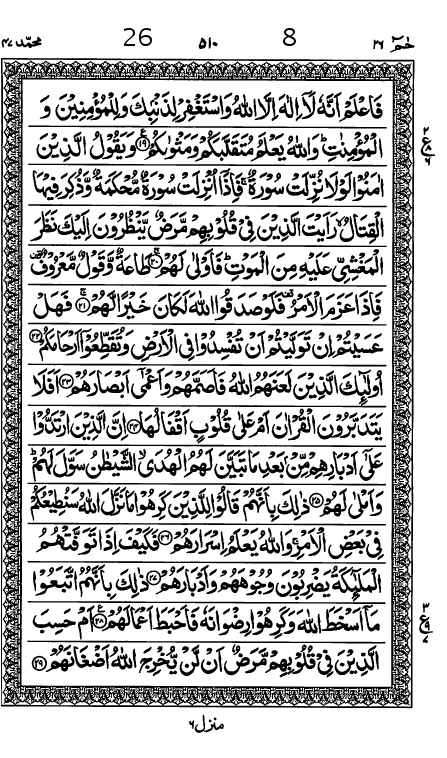 محمّد ٤٧ 26 ٥١٠ 8 حٰمٓ ٢٦
فَاعْلَمْ اَنَّهٗ لَاۤ اِلٰهَ اِلَّا اللّٰهُ وَاسْتَغْفِرْ لِذَنْۢبِكَ وَلِلْمُؤْمِنِيْنَ وَ
الْمُؤْمِنٰتِؕ وَاللّٰهُ يَعْلَمُ مُتَقَلَّبَكُمْ وَمَثْوٰىكُمْ ﴿١٩﴾ وَيَقُوْلُ الَّذِيْنَ
اٰمَنُوْا لَوْلَا نُزِّلَتْ سُوْرَةٌ ۚ فَاِذَاۤ اُنْزِلَتْ سُوْرَةٌ مُّحْكَمَةٌ وَّذُكِرَ فِيْهَا
الْقِتَالُ ۙ رَاَيْتَ الَّذِيْنَ فِيْ قُلُوْبِهِمْ مَّرَضٌ يَّنْظُرُوْنَ اِلَيْكَ نَظَرَ
الْمَغْشِيِّ عَلَيْهِ مِنَ الْمَوْتِؕ فَاَوْلٰى لَهُمْ ﴿٢٠﴾ طَاعَةٌ وَّقَوْلٌ مَّعْرُوْفٌ
فَاِذَا عَزَمَ الْاَمْرُ فَلَوْ صَدَقُوا اللّٰهَ لَكَانَ خَيْرًا لَّهُمْ ﴿٢١﴾ فَهَلْ
عَسَيْتُمْ اِنْ تَوَلَّيْتُمْ اَنْ تُفْسِدُوْا فِي الْاَرْضِ وَتُقَطِّعُوْۤا اَرْحَامَكُمْ ﴿٢٢﴾
اُولٰٓئِكَ الَّذِيْنَ لَعَنَهُمُ اللّٰهُ فَاَصَمَّهُمْ وَاَعْمٰۤى اَبْصَارَهُمْ ﴿٢٣﴾ اَفَلَا
يَتَدَبَّرُوْنَ الْقُرْاٰنَ اَمْ عَلٰى قُلُوْبٍ اَقْفَالُهَا ﴿٢٤﴾ اِنَّ الَّذِيْنَ ارْتَدُّوْا
عَلٰۤى اَدْبَارِهِمْ مِّنْۢ بَعْدِ مَا تَبَيَّنَ لَهُمُ الْهُدَى ۙ الشَّيْطٰنُ سَوَّلَ لَهُمْؕ
وَاَمْلٰى لَهُمْ ﴿٢٥﴾ ذٰلِكَ بِاَنَّهُمْ قَالُوْا لِلَّذِيْنَ كَرِهُوْا مَا نَزَّلَ اللّٰهُ سَنُطِيْعُكُمْ
فِيْ بَعْضِ الْاَمْرِ ۚ وَاللّٰهُ يَعْلَمُ اِسْرَارَهُمْ ﴿٢٦﴾ فَكَيْفَ اِذَا تَوَفَّتْهُمُ
الْمَلٰٓئِكَةُ يَضْرِبُوْنَ وُجُوْهَهُمْ وَاَدْبَارَهُمْ ﴿٢٧﴾ ذٰلِكَ بِاَنَّهُمُ اتَّبَعُوْا
مَاۤ اَسْخَطَ اللّٰهَ وَكَرِهُوْا رِضْوَانَهٗ فَاَحْبَطَ اَعْمَالَهُمْ ﴿٢٨﴾ اَمْ حَسِبَ
الَّذِيْنَ فِيْ قُلُوْبِهِمْ مَّرَضٌ اَنْ لَّنْ يُّخْرِجَ اللّٰهُ اَضْغَانَهُمْ ﴿٢٩﴾
٢ ع ٦
٣ ع ٧
منزل ٦